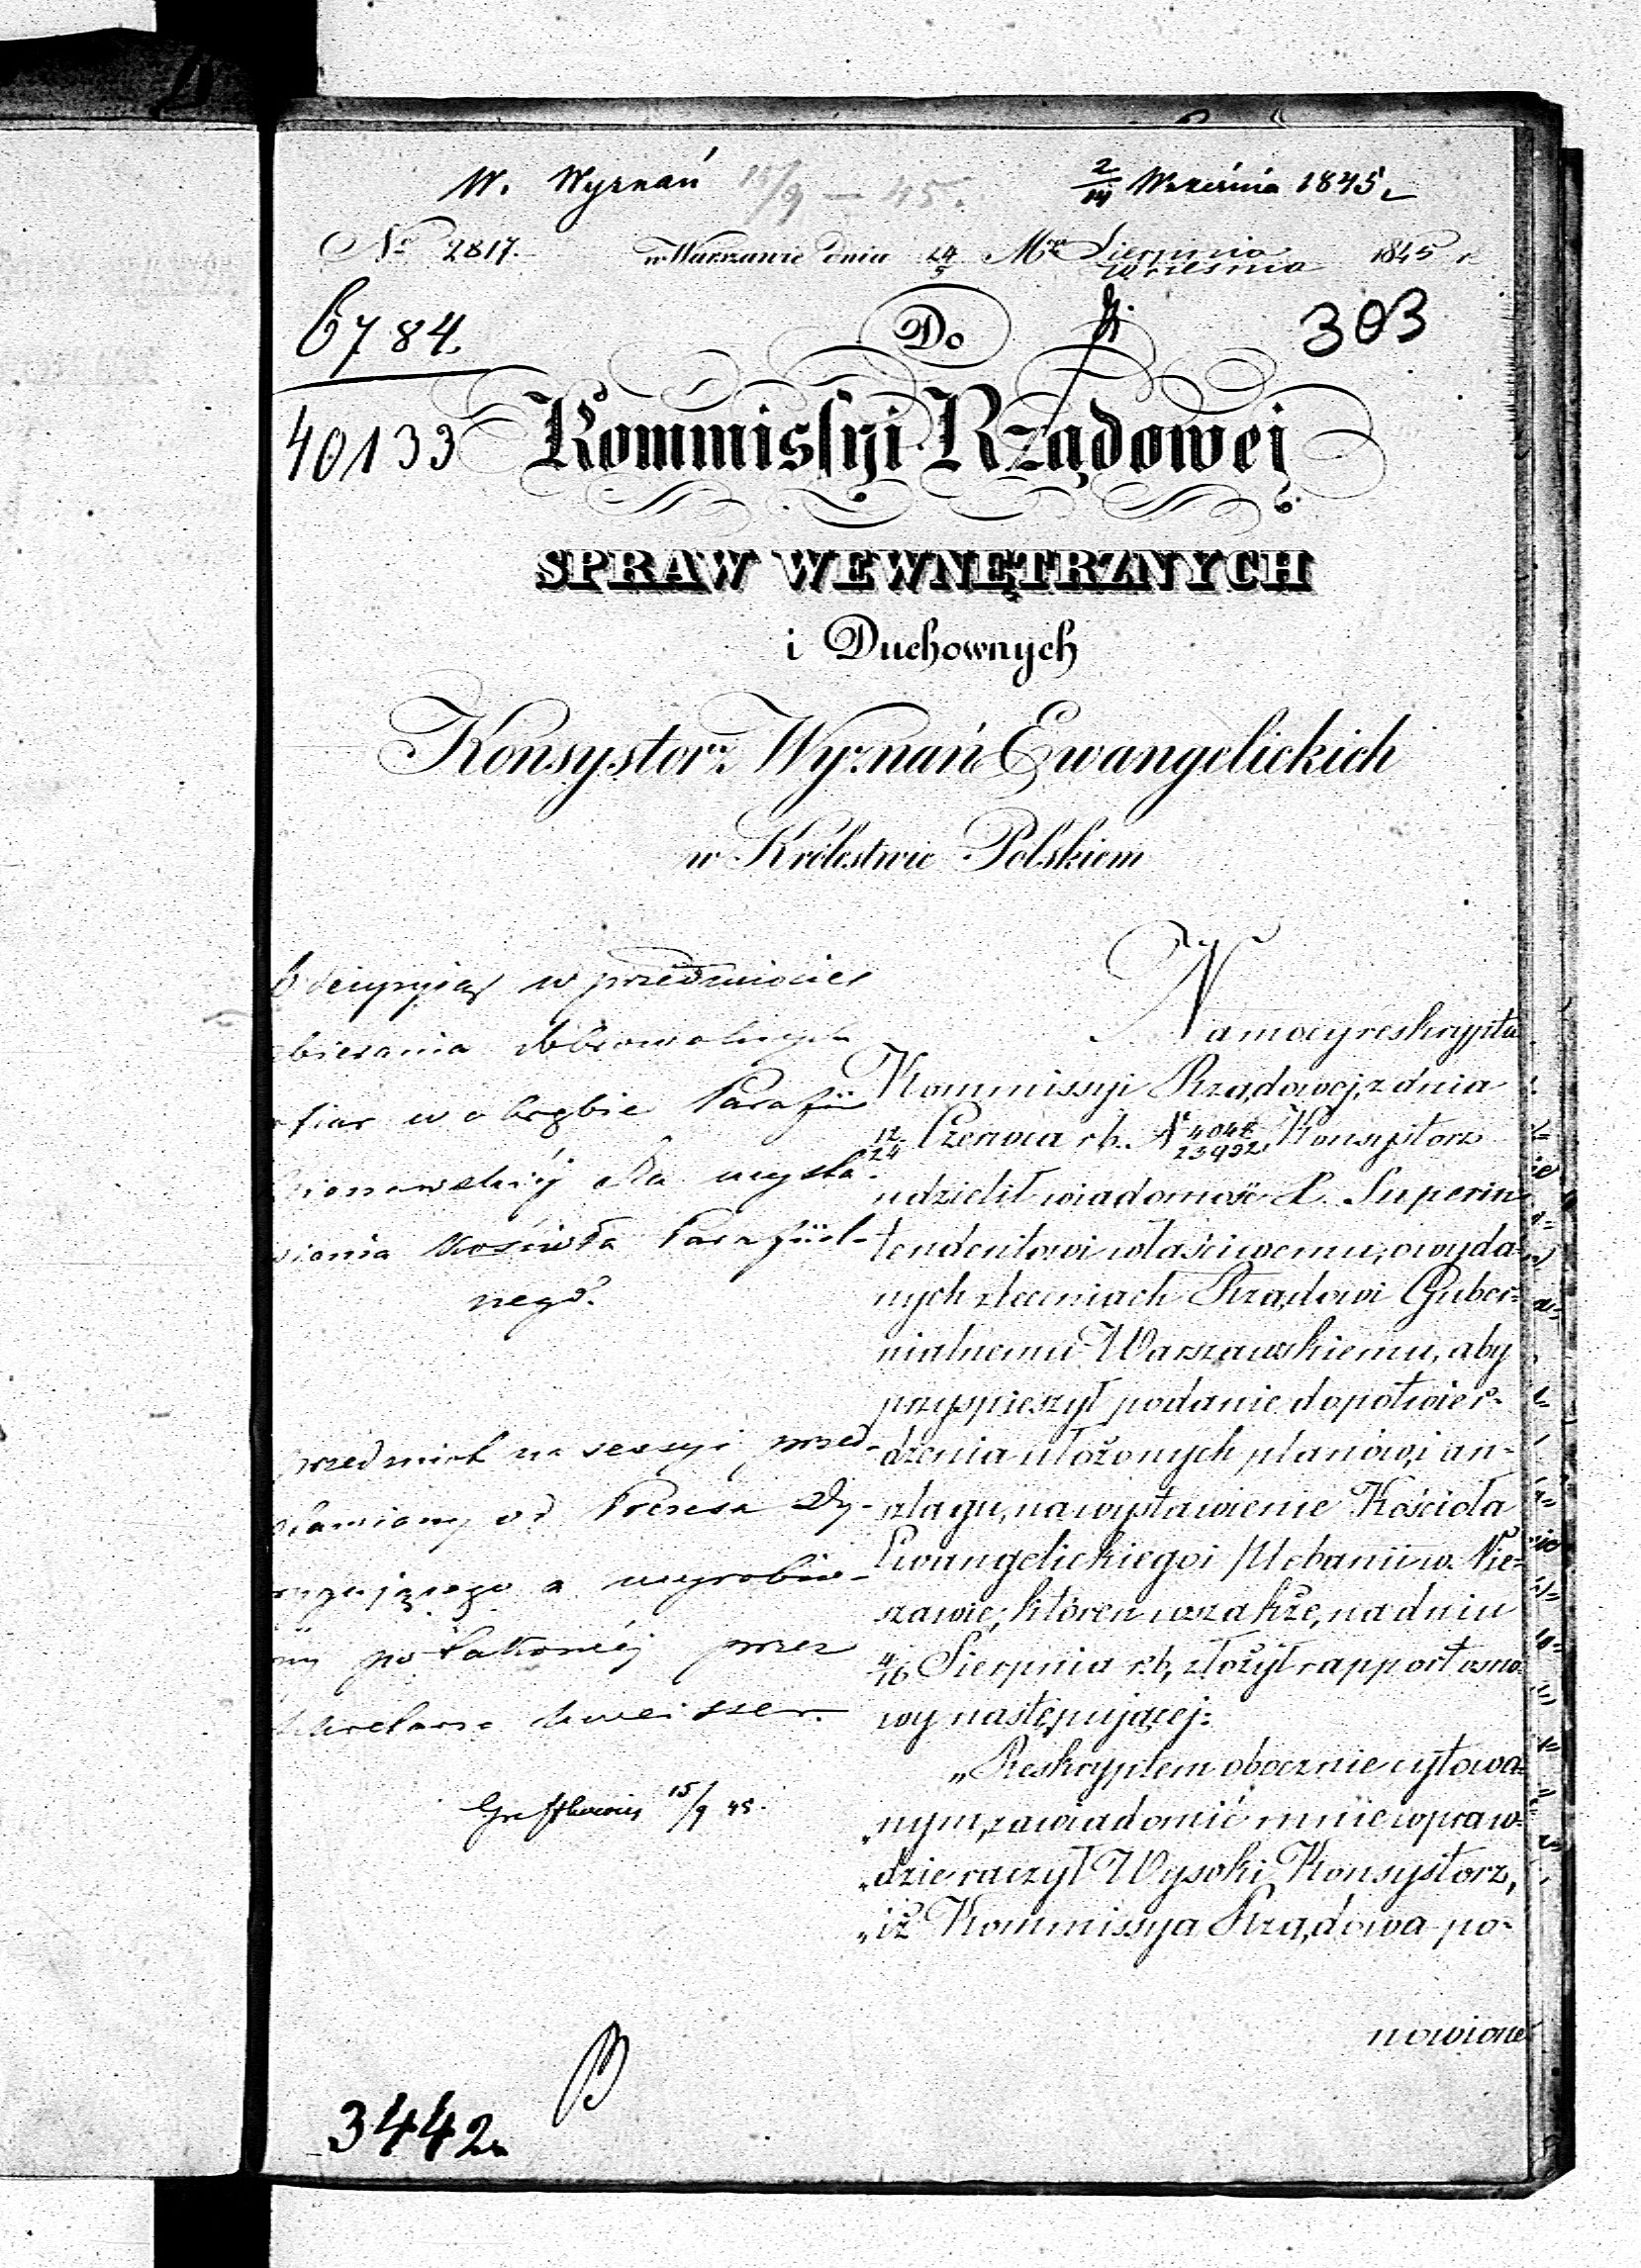 W. Wyznań 15/9 - 45.
2/14 Września 1845
No 2817. w Warszawie dnia 24/5 Mca Sierpnia/Września 1845 r
6784.
40133
303
Do
Kommissyi Rządowej
SPRAW WEWNĘTRZNYCH
i Duchownych
Konsystorz Wyznań Ewangelickich
w Królestwie Polskiem
w przedmiocie
bierania dobrowolnych
fiar w obrębie Parafii
dla wysta-
wienia Kościoła Parafial-
nego.
przedmiot na sessyi przed-
stawiony od Prezesa Dy-
rygującego a wyrobio-
ny przez
15/9 45.
Na mocy reskryptu
Kommissyi Rządowej z dnia
12/24 Czerwca r b. No 4042/23992 Konsystorz
udzielił wiadomość X. Superin
tendentowi właściwemu, o wyda-
nych zleceniach Rządowi Guber-
nialnemu Warszawskiemu, aby
przyspieszył podanie do potwier-
dzenia ułożonych planów i an-
szlagu, na wystawienie Kościoła
Ewangelickiego i Plebanii w Nie-
szawie; któren wszakże, na dniu
4/16 Sierpnia r.b, złożył rapport osno-
wy następującej:
„Reskryptem obocznie cytowa-
„nym, zawiadomić mnie wpraw-
„dzie raczył Wysoki Konsystorz,
„iż Kommissya Rządowa po-
nowione
3442